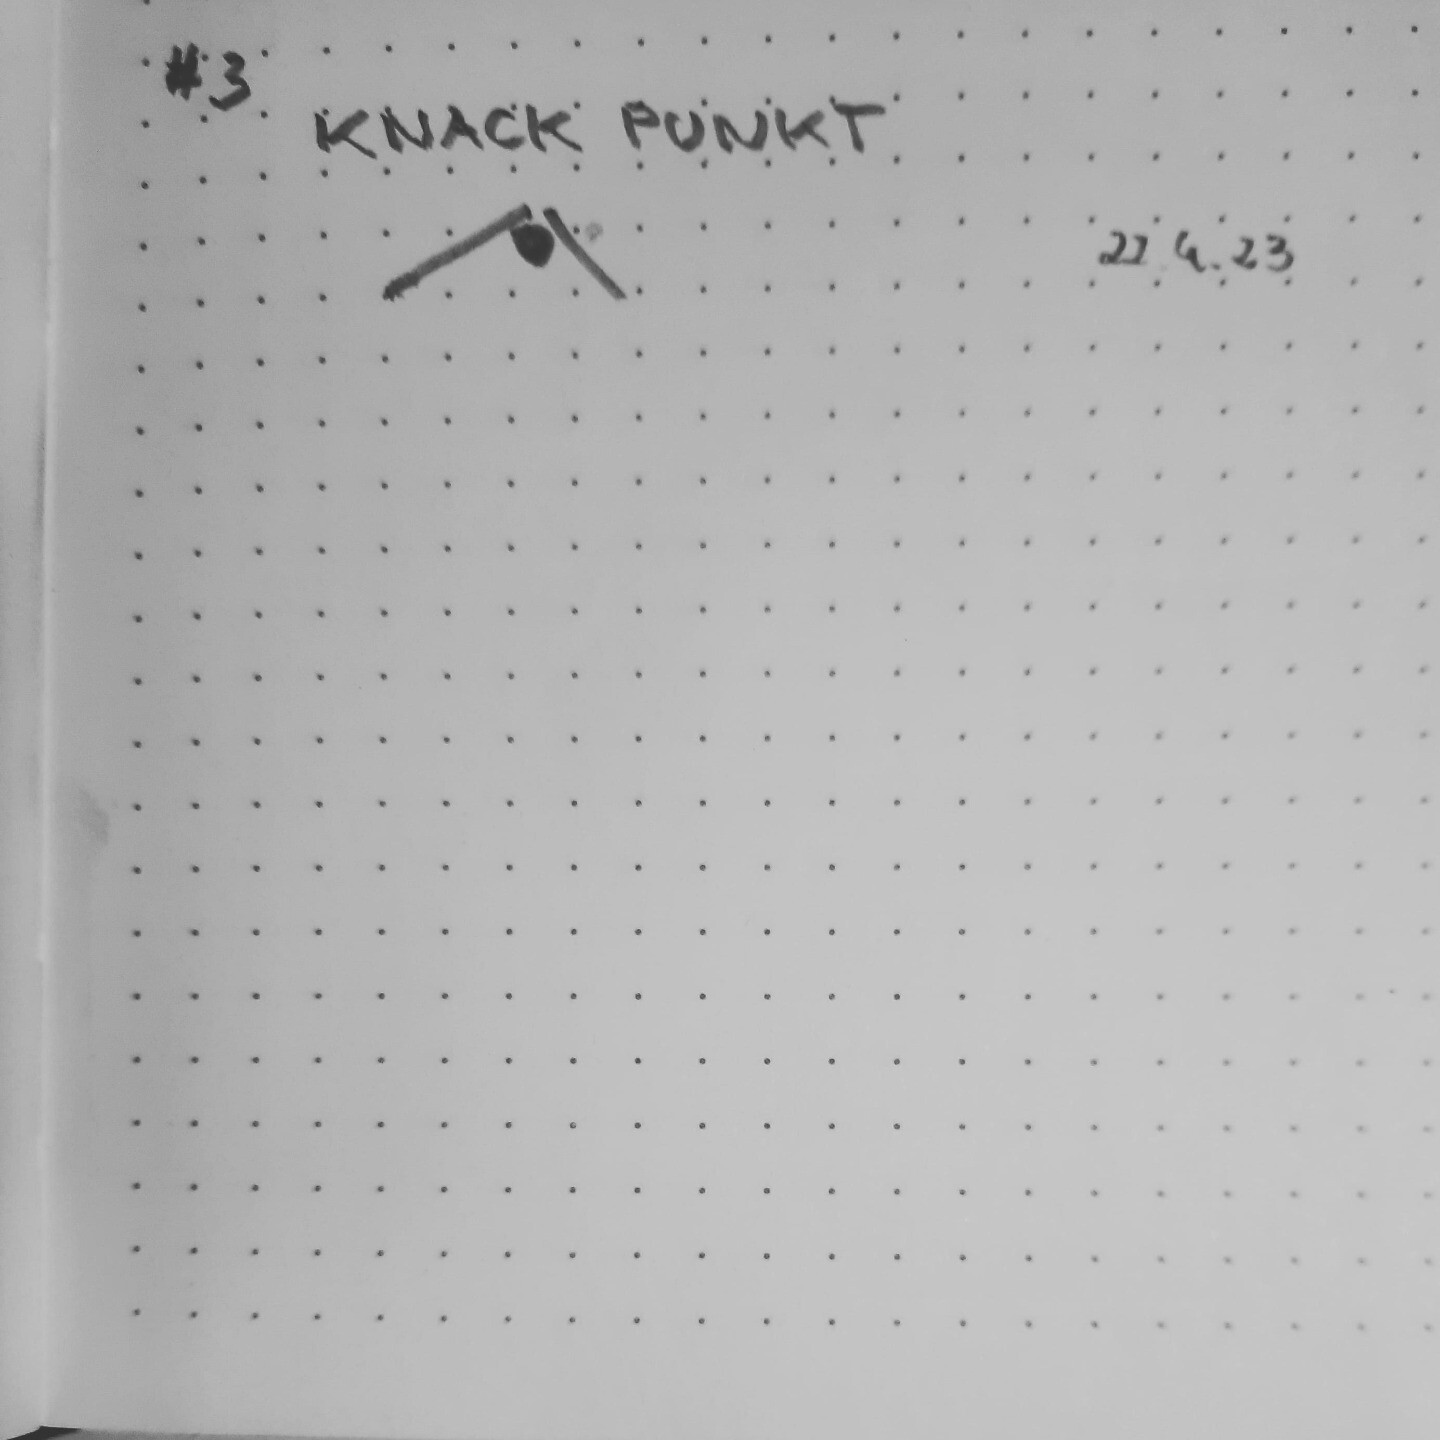 #3
KNACK PUNKT
22.4.23